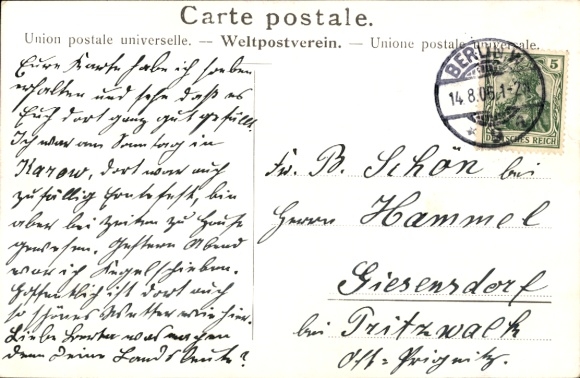 Carte postale.
Union postale universelle. — Weltpostverein. — Unione postale universale.
Eure Karte habe ich soeben
erhalten und sehe daß es
Euch dort ganz gut gefällt.
Ich war am Sonntag in
Karow, dort war auch
zufällig Erntefest, bin
aber bei Zeiten zu Hause
gewesen. Gestern Abend
war ich Kegelschieben.
Hoffentlich ist dort auch
so schönes Wetter wie hier.
Liebe Berta was machen
denn Deine Landsleute?
BERLIN W.
14.8.05.1-2
5
DEUTSCHES REICH
Fr. B. Schön bei
Herrn Hammel
Giesensdorf
bei Pritzwalk
Ost-Prignitz.